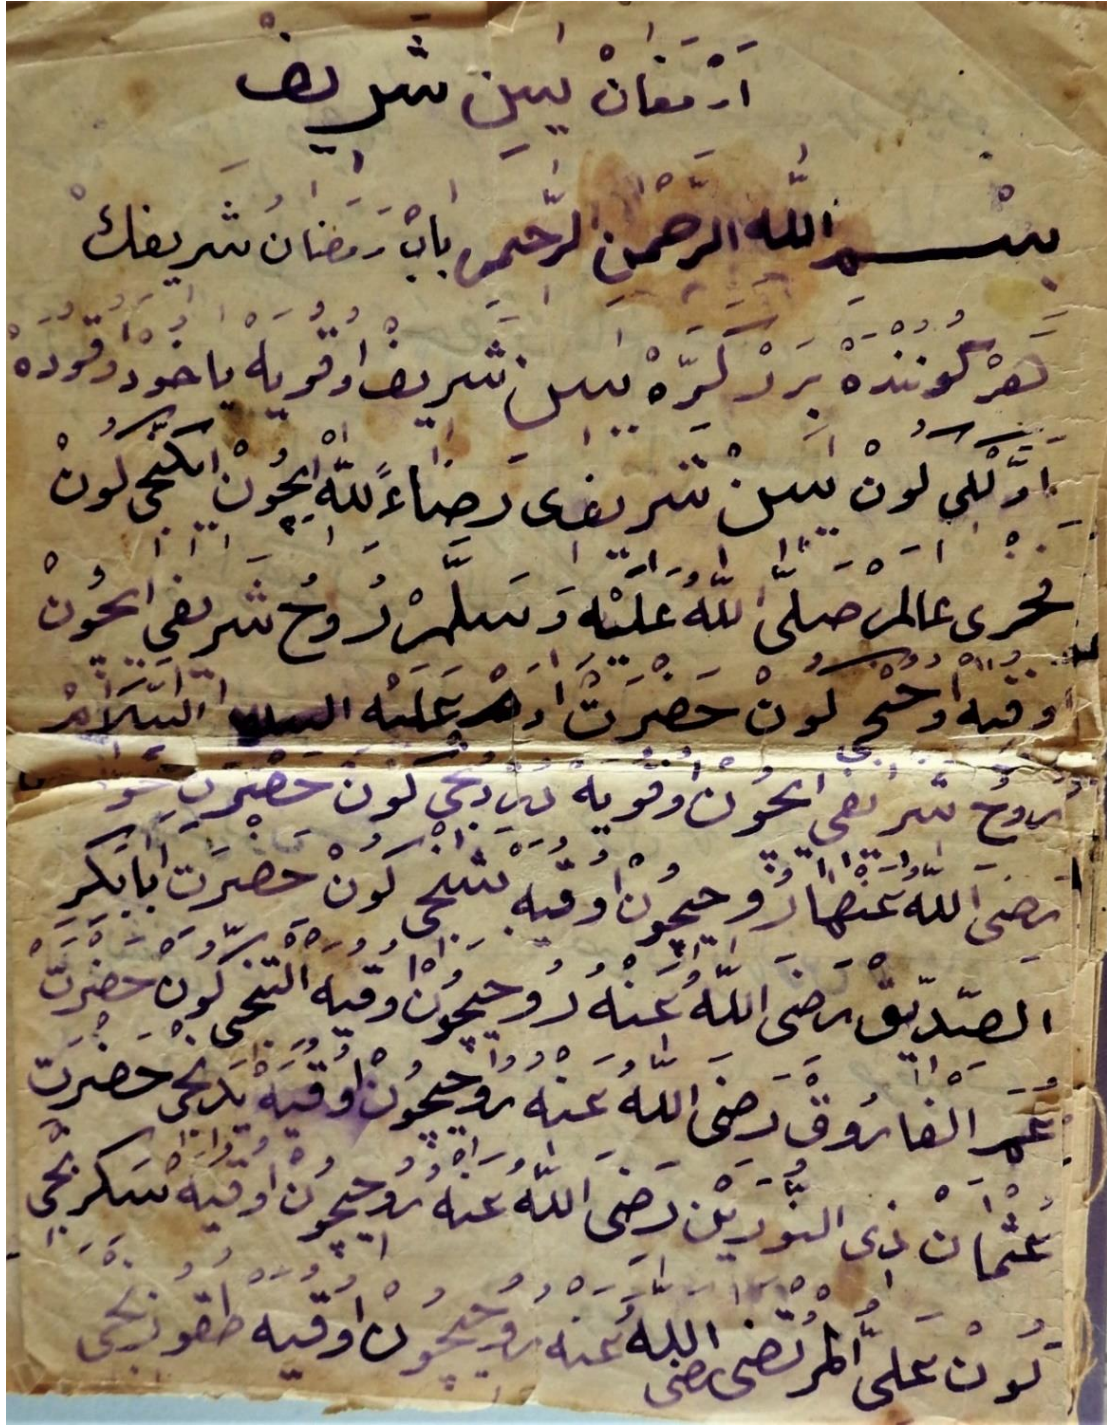 اَرْمَغَانْ يٰسِن شَرِيفْ
بِسْمِ اللّٰهِ الرَّحْمٰنِ الرَّحِيمِ بٰابْ رَمَضٰانُ شَرِيفِكْ
هَرْ كُونِنْدَهْ بِرَرْ كَرَّهْ يٰسِن شَرِيف اوُقُويَهْ ياخود اوُقُودَهْ
اَوَّلْكِى كُونْ يٰسِنْ شَرِيفِى رَضَاءً لِلّٰهِ اِيچُونْ ايكِنْجِى كُونْ
فَخْرِى عَالَمْ صَلَّى اللّٰهُ عَلَيْهِ وَسَلَّمَ رُوحُ شَرِيفِى اِيچُونْ
اوُقيَه اوُچُنْجِى كُونْ حَضْرَتْ اٰدَمْ عَلَيْهِ السَّلَامْ
رُوحُ شَرِيفِى اِيچُونْ اوُقُويَه دُرْدُنْجِى كُونْ حَضْرَتِ حَوَّا
رَضِىَ اللّٰهُ عَنْهَا رُوحِيچُونْ اوُقُيَه بَشِنْجِى كُونْ حَضْرَتْ اَبَابَكْرِ
الصِّدِّيقْ رَضِىَ اللّٰهُ عَنْهُ رُوحِيچُونْ اوُقيَه اَلْتِنْجِى كُونْ حَضْرَتْ
عُمَرَ الْفَارُوقْ رَضِىَ اللّٰهُ عَنْهُ رُوحِيچُونْ اوُقُيَهْ يَدِنْجِى حَضْرَتْ
عُثْمَانْ ذِى النُّورَيْنْ رَضِىَ اللّٰهُ عَنْهُ رُوحِيچُونْ اوُقيَهْ سَكِزِنْجِى
كُونْ عَلِى الْمُرْتَضٰى رَضِىَ اللّٰهُ عَنْهُ رُوحِيچُونْ اوُقيَه طُقُوزُنْجِى